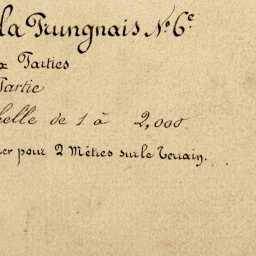 la Trungnais N.º 6.e
x Parties
Partie
helle de 1 à 2,000
er pour 2 Mètres sur le Terrain.